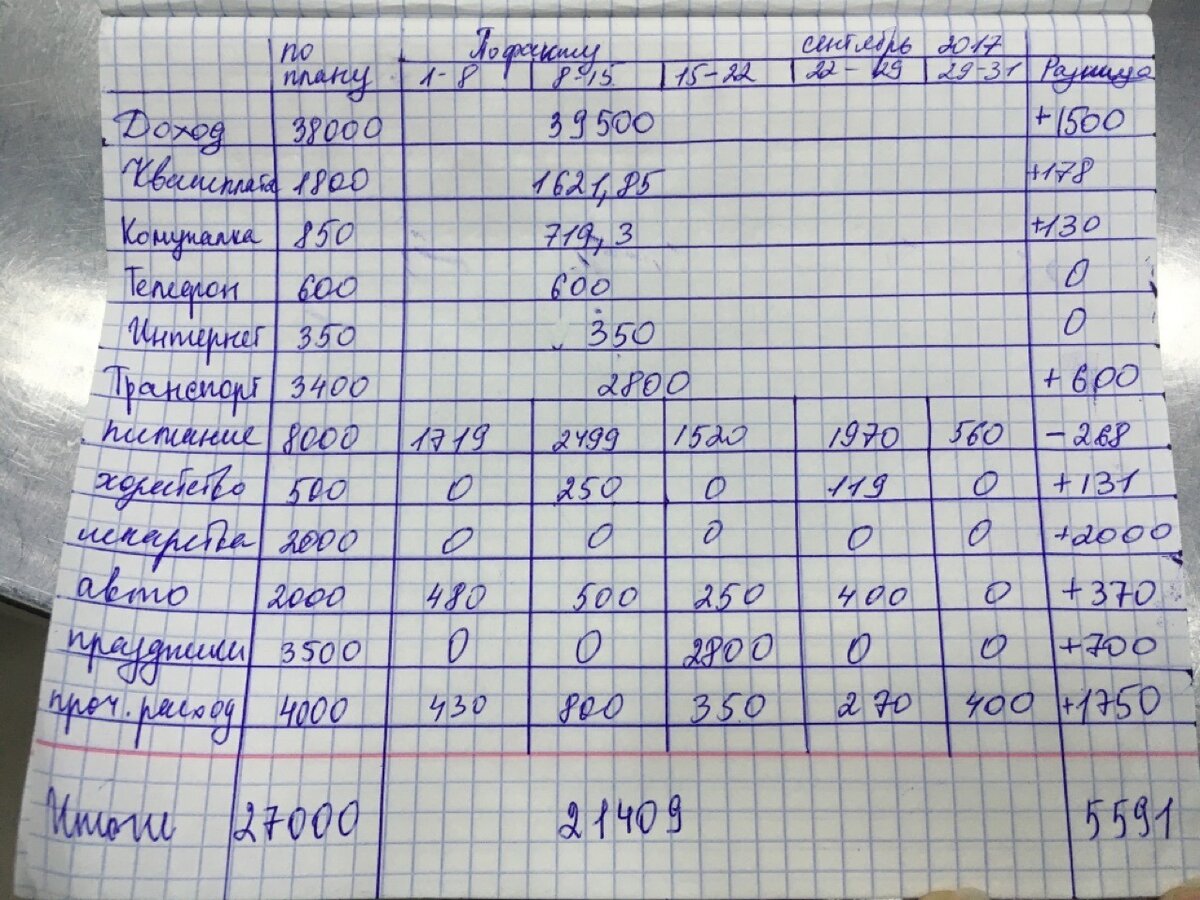 по По факту сентябрь 2017
плану 1-8 8-15 15-22 22-29 29-31 Разница
Доход 38000 39500 +1500
Квартплата 1800 1621,85 +178
Комуналка 850 719,3 +130
Телефон 600 600 0
Интернет 350 350 0
Транспорт 3400 2800 +600
питание 8000 1719 2499 1520 1970 560 -268
хозяйство 500 0 250 0 119 0 +131
лекарства 2000 0 0 0 0 0 +2000
авто 2000 480 500 250 400 0 +370
праздники 3500 0 0 2800 0 0 +700
проч. расход 4000 430 800 350 270 400 +1750
Итоги 27000 21409 5591